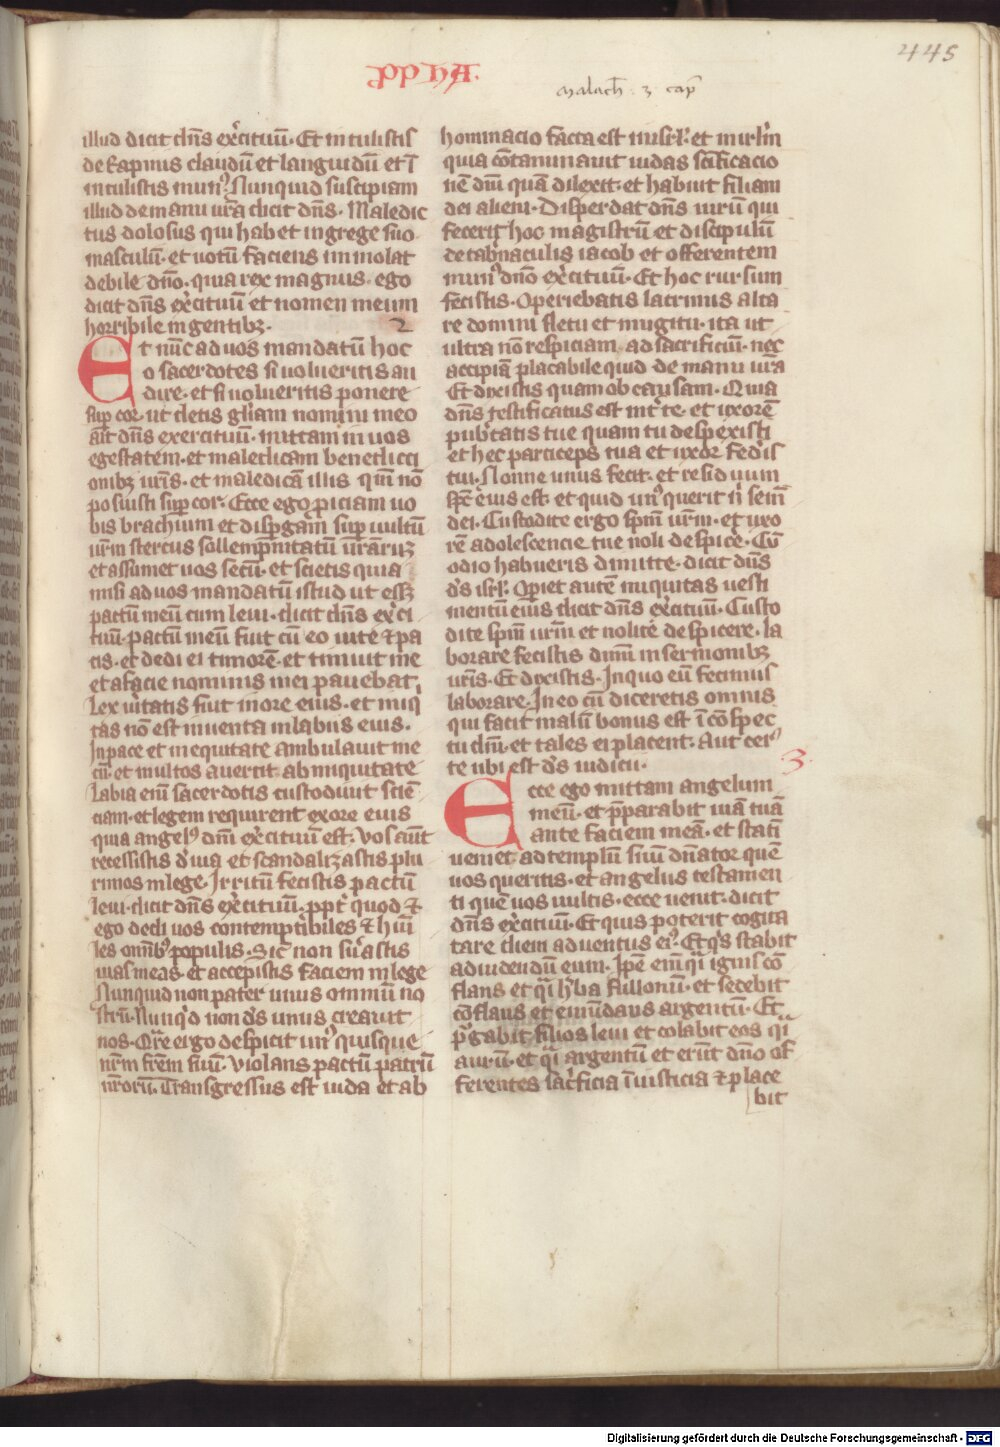 445
PPHA.
Malach. 3. cap
illud dicit dn̄s exc̓ituū. Et intulistis
de rapinis claudū et languidū et ī
intulistis mun᷒. Nunquid suscipiam
illud de manu ur̄a dicit dn̄s. Maledic
tus dolosus qui habet in grege suo
masculū. et uotū faciens immolat
debile dn̄o. quia rex magnus ego
dicit dn̄s exc̓ituū et nomen meum
horribile in gentibꝫ. 2
Et nūc ad uos mandatū hoc
o sacerdotes si uolueritis au
dire. et si uolueritis ponere
suꝑ cor. ut detis gl̄iam nomini meo
ait dn̄s exercituū. mittam in uos
egestatem. et maledicam benedicti
onibꝫ ur̄is. et maledicā illis qm̄ nō
posuisti suꝑ cor. Ecce ego ꝓiciam uo
bis brachium et disꝑgam suꝑ uultū
ur̄m stercus sollempnitatū ur̄arūꝫ
et assumet uos secū. et scietis quia
misi ad uos mandatū istud ut essꝫ
pactū meū cum leui. dicit dn̄s exc̓i
tuū. pactū meū fuit cū eo uite ⁊ pa
cis. et dedi ei timorē. et timuit me
et a facie nominis mei pauebat.
Lex ūitatis fuit in ore eius. et iniq
tas nō est inuenta in labiis eius.
In pace et in equitate ambulauit me
cū. et multos auertit ab iniquitate
Labia enī sacerdotis custodiūt sciē
ciam. et legem requirent ex ore eius
quia angel᷒ dn̄i exc̓ituū est. Vos aūt
recessistis d̓ uia et scandalizastis plu
rimos in lege. Irritū fecistis pactū
leui. dicit dn̄s exc̓ituū. ꝓpt̓ quod ⁊
ego dedi uos contemptibiles ⁊ hūi
les omīb᷒ populis. Sic̄ non su̓astis
uias meas. et accepistis faciem in lege
Nunquid non pater unus omniū no
strū. Nunqd̓ non d̄s unus creauit
nos. Qr̄e ergo despicit un᷒ quisque
nr̄m fr̄em suū. violans pactū patrū
nr̄orū. Transgressus est iuda et ab
hominacio facta est in isrl̄. et in irlm̄
quia cōtaminauit iudas sc̄ificacio
nē dn̄i quā dilexit. et habuit filiam
dei alieni. Disperdat dn̄s uirū qui
fecerit hoc magistrū et discipulū
de tabn̄aculis iacob et offerentem
mun᷒ dn̄o exc̓ituū. Et hoc rursum
fecistis. Operiebatis lacrimis alta
re domini fletu et mugitu. ita ut
ultra nō respiciam ad sacrificiū. nec
accipiā placabile quid de manu ur̄a
Et dixistis quam ob causam. Quia
dn̄s testificatus est int̓ te. et uxorē
pub̓tatis tue quam tu despexisti
et hec particeps tua et uxor fed̓is
tui. Nonne unus fecit. et residuum
sp̄c eius est. et quid un᷒ querit n̄ semē
dei. Custodite ergo sp̄m ur̄m. et uxo
rē adolescencie tue noli despic̓e. Cū
odio habueris dimitte. dicit dn̄s
d̄s isrl̄. Oꝑiet autē iniquitas uesti
mentū eius dicit dn̄s exc̓ituū. Custo
dite sp̄m ur̄m et nolite despicere. La
borare fecistis dn̄m in sermonibꝫ
ur̄is. Et dixistis. In quo eū fecimus
laborare. In eo cū diceretis omnis
qui facit malū bonus est ī cōspec
tu dn̄i. et tales ei placent. Aut cer
te ubi est d̄s iudicii. 3
Ecce ego mittam angelum
meū. et p̄parabit uiā tuā
ante faciem meā. et statī
ueniet ad templū suū dn̄ator quē
uos queritis. et angelus testamen
ti quē uos uultis. ecce uenit. dicit
dn̄s exc̓ituū. Et quis poterit cogita
tare diem aduentus ei᷒. Et qs̓ stabit
ad uidendū eum. Ip̄e enī qi̓ ignis cō
flans et qi̓ h̓ba fullonū. et sedebit
cōflans et emūdans argentū. Et
p̓gabit filios leui et colabit eos qi̓
aurū. et qi̓ argentū et erūt dn̄o of
ferentes sac̓ficia ī iusticia ⁊ place
bit
Digitalisierung gefördert durch die Deutsche Forschungsgemeinschaft - DFG